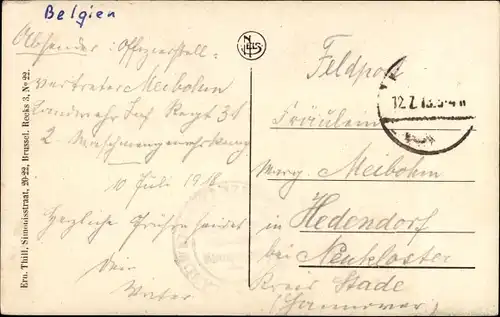 Belgien
Absender: Offizierstell-
vertreter Meibohm
Landwehr Inf Regt 31
2. Maschinengewehrkomp
10 Juli 1918
Herzliche Grüße sendet
Dein
Vater
NELS
Feldpost
Fräulein
Marg. Meibohm
in Hedendorf
bei Neukloster
Kreis Stade
(Hannover)
Ern. Thill, Simonisstraat, 20-22, Brussel. Reeks 3, No 22.